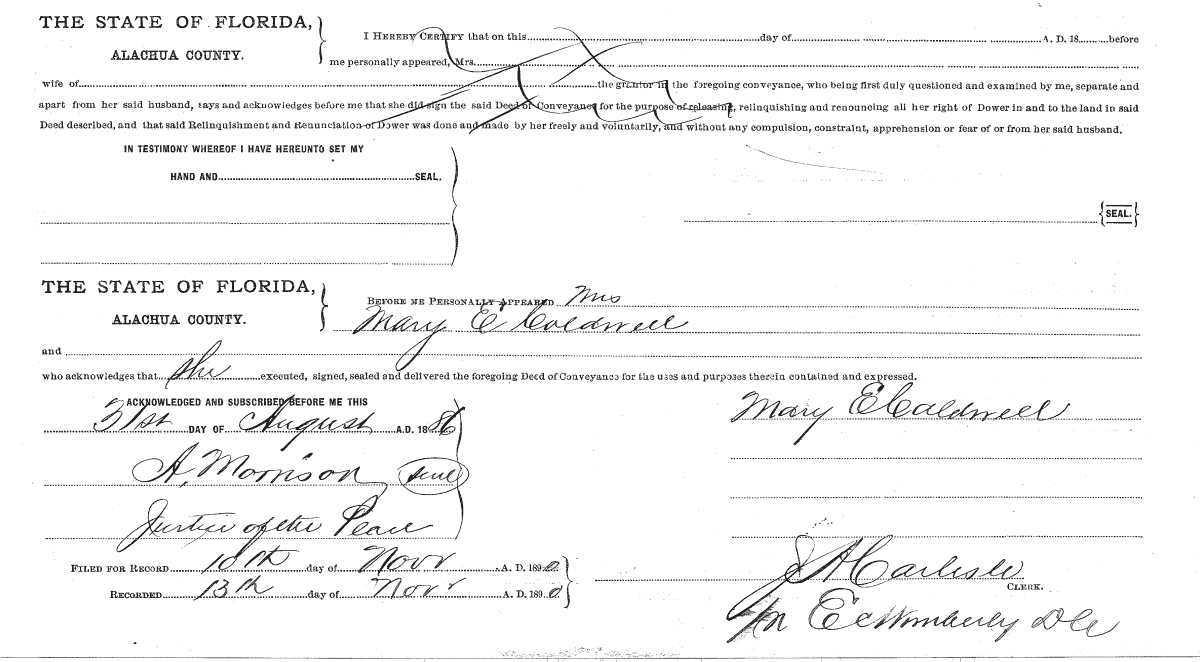 THE STATE OF FLORIDA,
ALACHUA COUNTY.
I HEREBY CERTIFY that on this day of A. D. 18 before
me personally appeared, Mrs.
wife of the grantor in the foregoing conveyance, who being first duly questioned and examined by me, separate and
apart from her said husband, says and acknowledges before me that she did sign the said Deed of Conveyance for the purpose of releasing, relinquishing and renouncing all her right of Dower in and to the land in said
Deed described, and that said Relinquishment and Renunciation of Dower was done and made by her freely and voluntarily, and without any compulsion, constraint, apprehension or fear of or from her said husband.
IN TESTIMONY WHEREOF I HAVE HEREUNTO SET MY
HAND AND SEAL.
SEAL.
THE STATE OF FLORIDA,
ALACHUA COUNTY.
BEFORE ME PERSONALLY APPEARED Mrs
Mary E Caldwell
and
who acknowledges that she executed, signed, sealed and delivered the foregoing Deed of Conveyance for the uses and purposes therein contained and expressed.
ACKNOWLEDGED AND SUBSCRIBED BEFORE ME THIS
31st DAY OF August A.D. 1886
Mary E Caldwell
A, Morrison seal
Justice of the Peace
FILED FOR RECORD 10th day of Novr A. D. 1890
RECORDED 13th day of Novr A. D. 1890
J A Carlisle
CLERK.
E C Wimberly D C